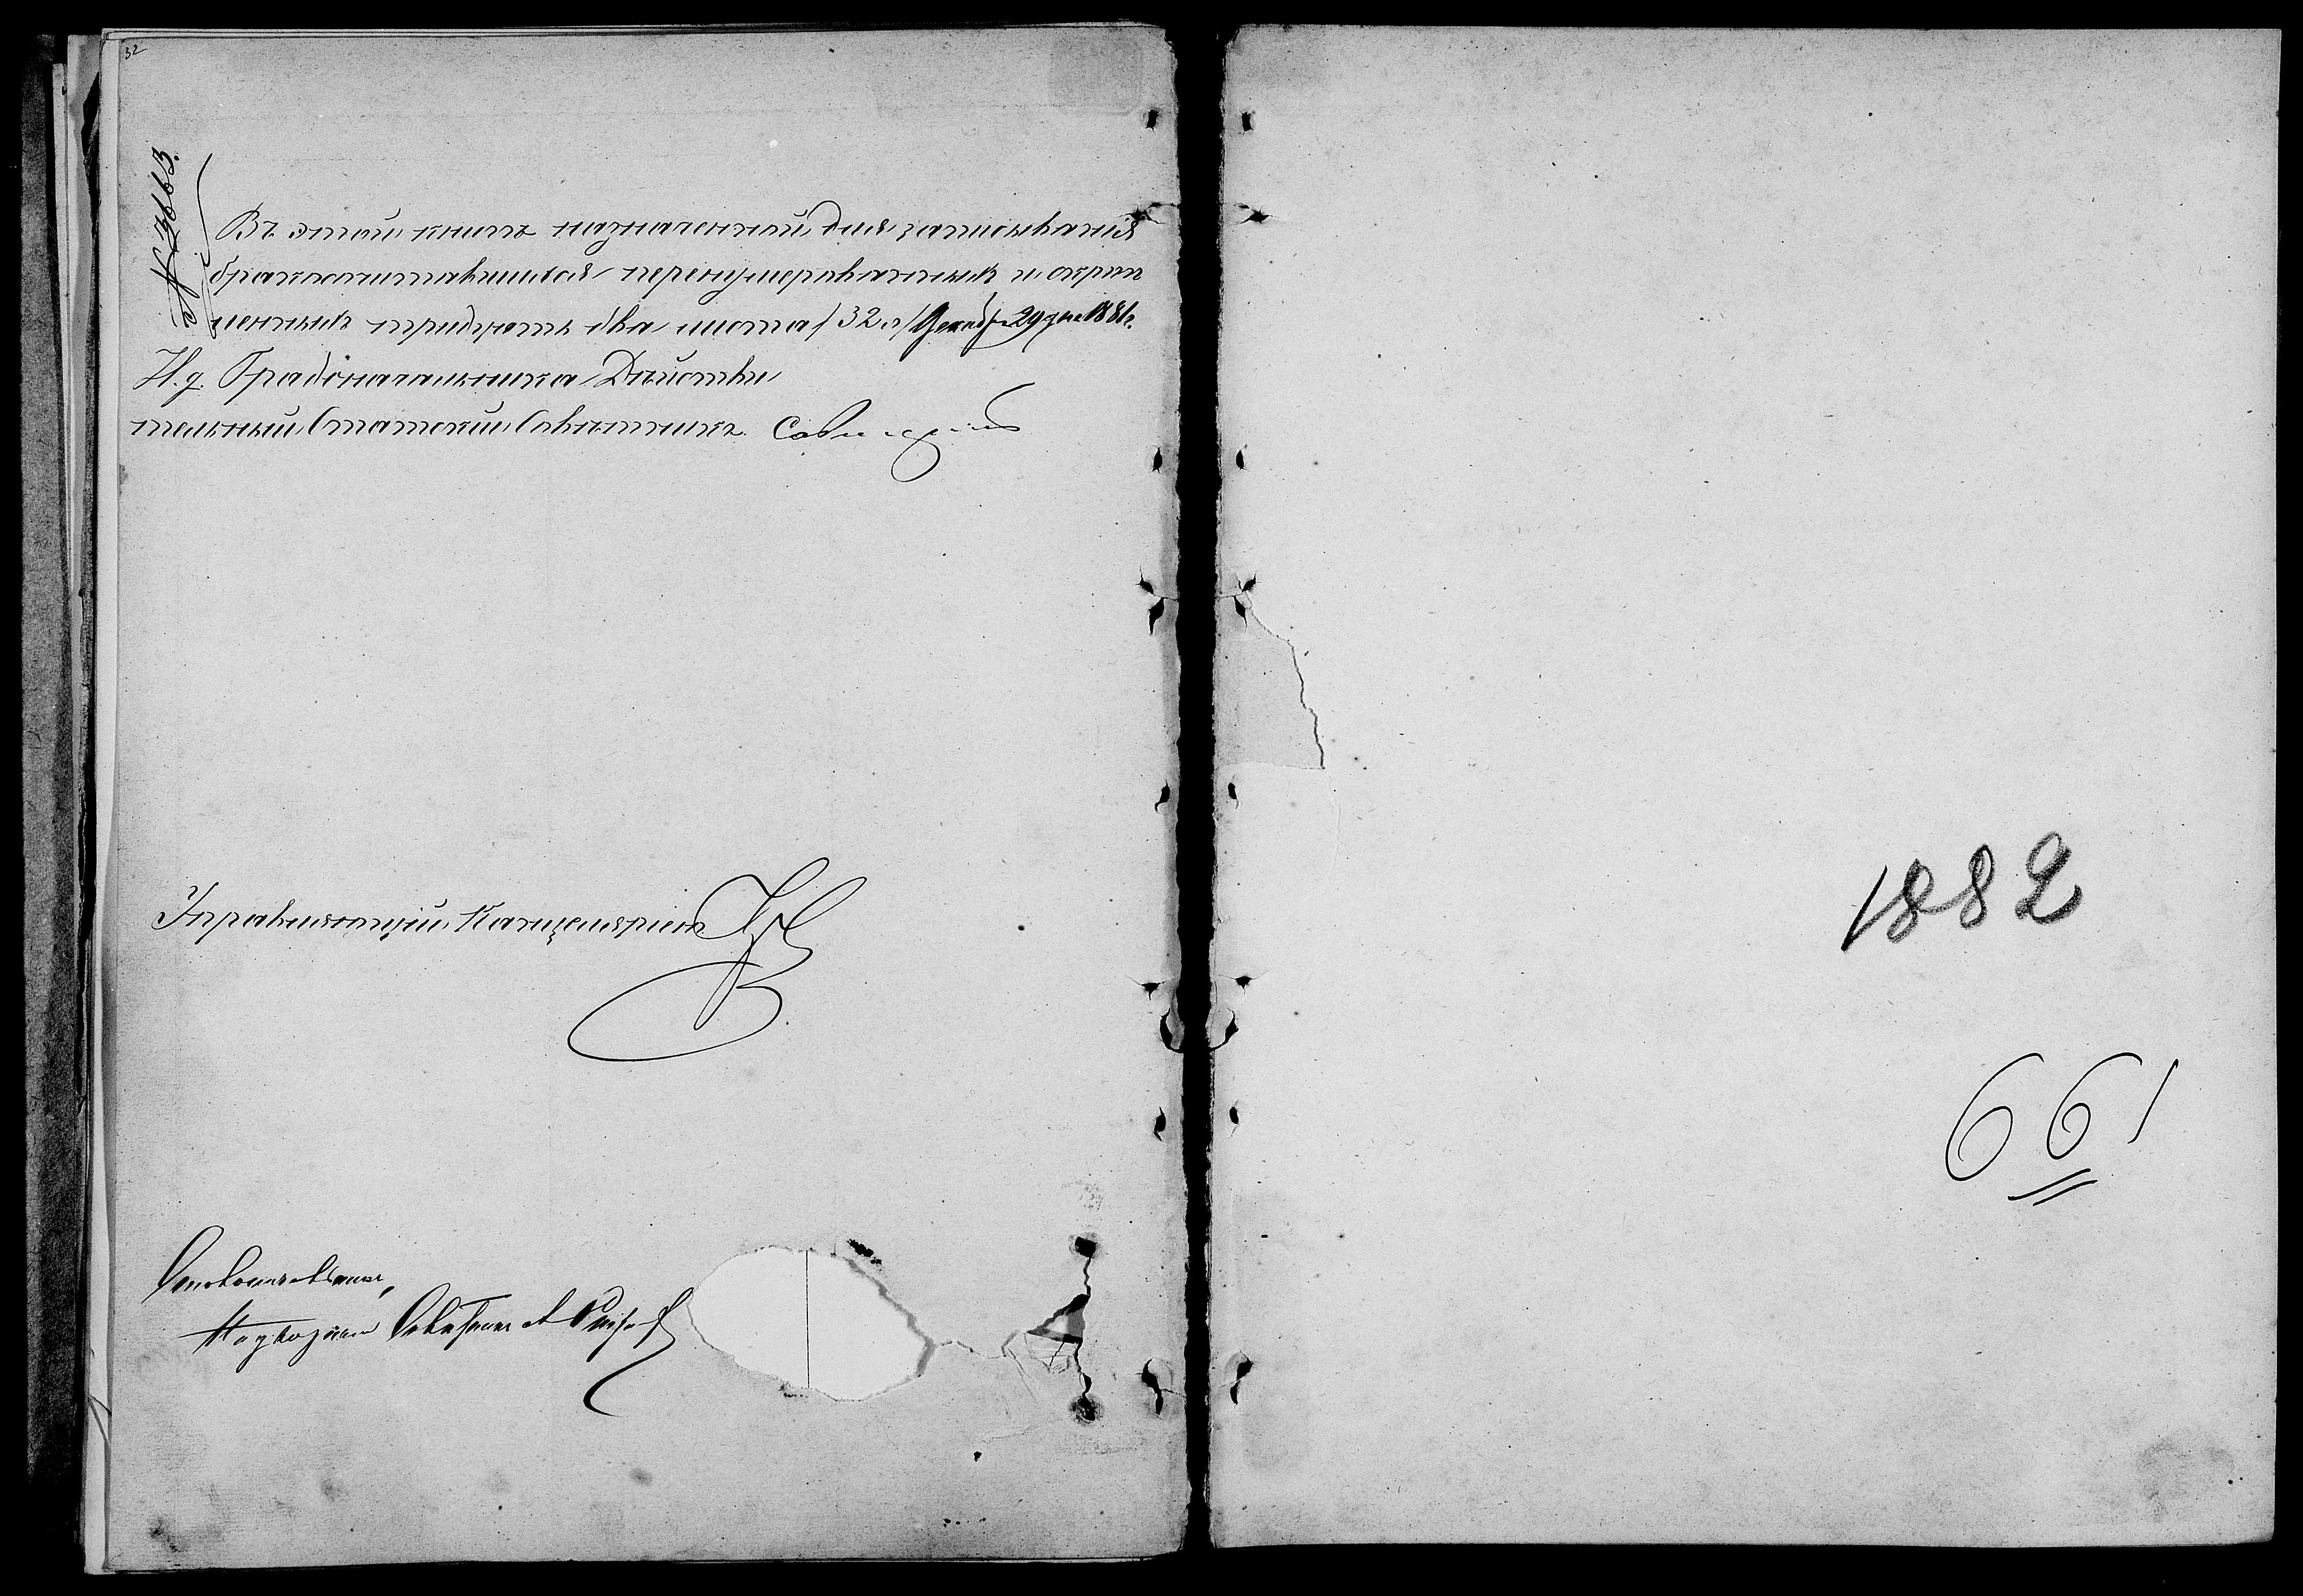 32
№ 9663.
Въ этой книгѣ назначенной для записыванія
бракосочитавшихся перенумерованныхъ и скрѣп
ленныхъ тридцать два листа /32 л/ Декабря 29 дня 1881 г.
И. д. Градоначальника Дѣйстви
тельный Статскій Совѣтникъ
Управляющій Канцеляріею
Столоначальникъ,
Надворный Совѣтникъ
1882
661